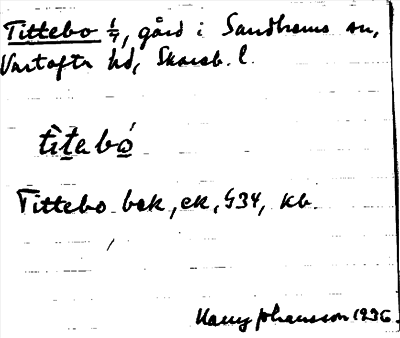 Tittebo 1/7, gård i Sandhems sn,
Vartofta hd, Skarab. l.
titebo
Tittebo bek, ek, G34, kb.
Harry Johansson 1936.